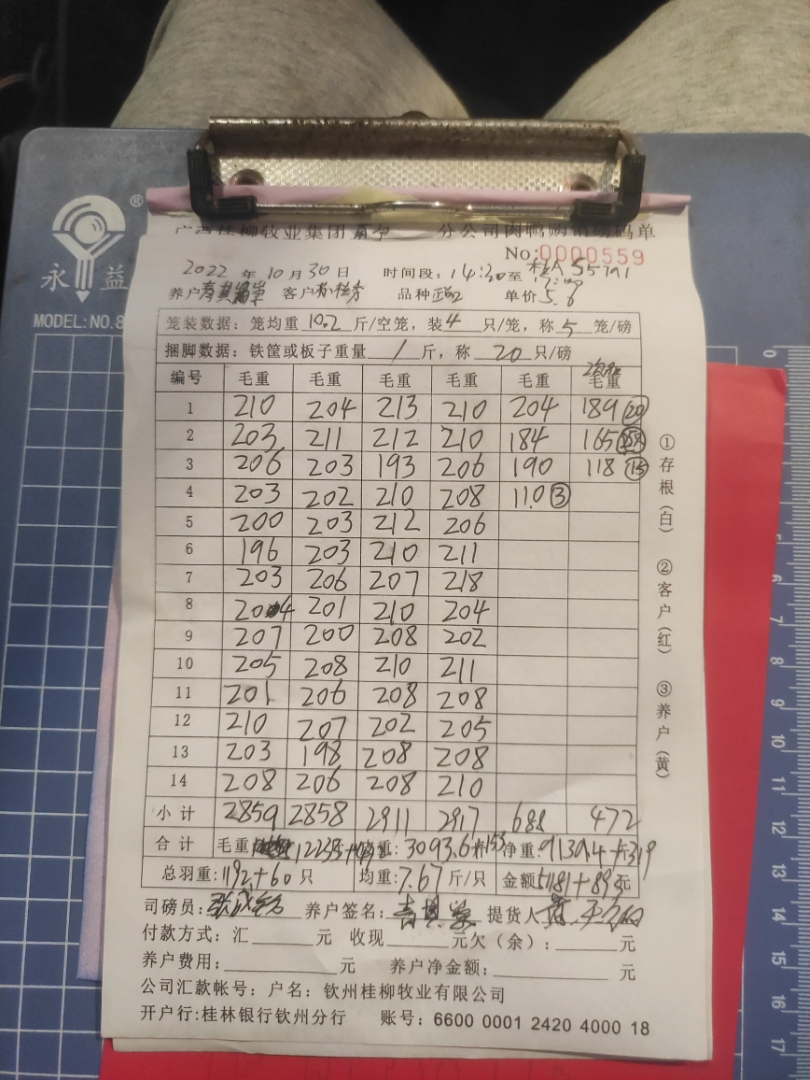 永益
®
MODEL:NO.8
广西桂柳牧业集团南宁 分公司肉鸭购销磅码单
No:0000559
2022 年 10 月 30 日 时间段: 14:20 至
养户 客户 品种 单价 5.8
笼装数据: 笼均重 10.2 斤/空笼, 装 4 只/笼, 称 5 笼/磅
捆脚数据: 铁筐或板子重量 1 斤, 称 20 只/磅
编号 毛重 毛重 毛重 毛重 毛重 毛重
1 210 204 213 210 204 189 20
2 203 211 212 210 184 165
3 206 203 193 206 190 118 15
4 203 202 210 208 110 3
5 200 203 212 206
6 196 203 210 211
7 203 206 207 218
8 204 201 210 204
9 207 200 208 202
10 205 208 210 211
11 201 206 208 208
12 210 207 202 205
13 203 198 208 208
14 208 206 208 210
小计 2859 2858 2911 2917 688 472
合计 毛重 重: 3093.6+153 净重: 9139.4+319
总羽重: 1192+60 只 均重: 7.67 斤/只 金额 元
司磅员: 养户签名: 提货人:
付款方式: 汇 元 收现 元欠(余): 元
养户费用: 元 养户净金额: 元
公司汇款帐号: 户名: 钦州桂柳牧业有限公司
开户行:桂林银行钦州分行 账号: 6600 0001 2420 4000 18
①存根(白) ②客户(红) ③养户(黄)
0
5
6
7
8
9
10
11
12
13
14
15
16
17